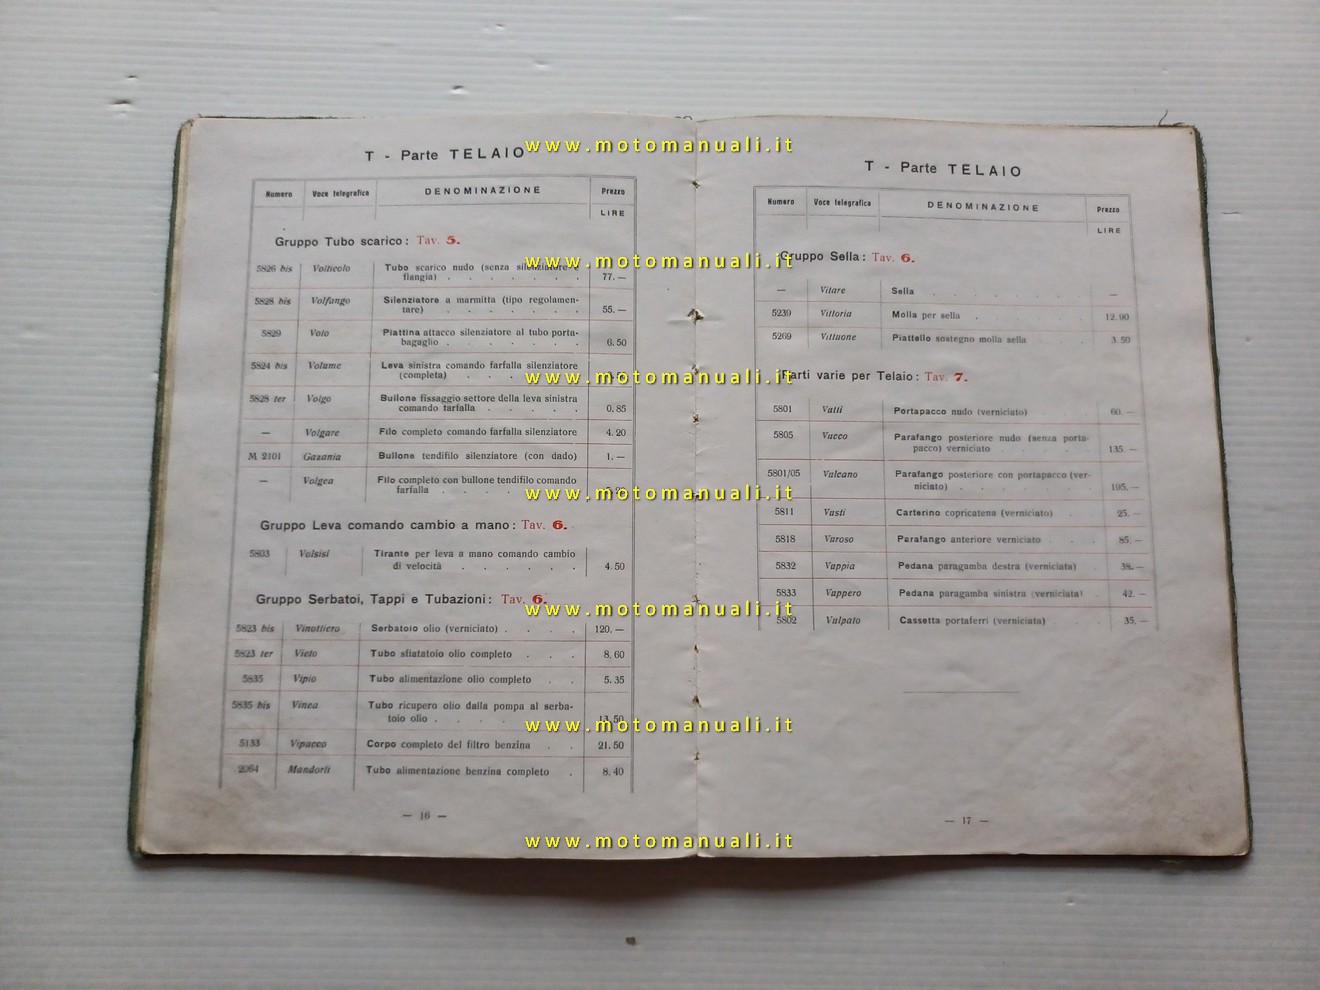 T - Parte TELAIO
Numero Voce telegrafica DENOMINAZIONE Prezzo
LIRE
Gruppo Tubo scarico: Tav. 5.
5826 bis Volticolo Tubo scarico nudo (senza silenziatore e
flangia) . . . . . . . 77.—
5828 bis Volfango Silenziatore a marmitta (tipo regolamen-
tare) . . . . . . . 55.—
5829 Volo Piattina attacco silenziatore al tubo porta-
bagaglio . . . . . . . 6.50
5824 bis Volume Leva sinistra comando farfalla silenziatore
(completa) . . . .
5828 ter Volgo Bullone fissaggio settore della leva sinistra
comando farfalla . . . . . 0.85
— Volgare Filo completo comando farfalla silenziatore 4.20
M 2101 Gazania Bullone tendifilo silenziatore (con dado) 1.—
— Volgea Filo completo con bullone tendifilo comando
farfalla . . . .
Gruppo Leva comando cambio a mano: Tav. 6.
5803 Volsisi Tirante per leva a mano comando cambio
di velocità . . . . . . 4.50
Gruppo Serbatoi, Tappi e Tubazioni: Tav. 6.
5823 bis Vinottiero Serbatoio olio (verniciato) . . . . 120.—
5823 ter Vieto Tubo sfiatatoio olio completo . . . 8.60
5835 Vipio Tubo alimentazione olio completo . . 5.35
5835 bis Vinea Tubo ricupero olio dalla pompa al serba-
toio olio . . . . . . 13.50
5133 Vipacco Corpo completo del filtro benzina . . 21.50
2064 Mandorit Tubo alimentazione benzina completo . 8.40
— 16 —
T - Parte TELAIO
Numero Voce telegrafica DENOMINAZIONE Prezzo
LIRE
Gruppo Sella: Tav. 6.
— Vitare Sella . . . . . . . —
5239 Vittoria Molla per sella . . . . . . 12.90
5269 Vittuone Piattello sostegno molla sella . . . 3.50
Parti varie per Telaio: Tav. 7.
5801 Vatti Portapacco nudo (verniciato) . . . 60.—
5805 Vacco Parafango posteriore nudo (senza porta-
pacco) verniciato . . . . . 135.—
5801/05 Valcano Parafango posteriore con portapacco (ver-
niciato) . . . . . . . 195.—
5811 Vasti Carterino copricatena (verniciato) . 25.—
5818 Varoso Parafango anteriore verniciato . . . 85.—
5832 Vappia Pedana paragamba destra (verniciata) . 38.—
5833 Vappero Pedana paragamba sinistra (verniciata) . 42.—
5802 Valpato Cassetta portaferri (verniciata) . . 35.—
— 17 —
www.motomanuali.it
www.motomanuali.it
www.motomanuali.it
www.motomanuali.it
www.motomanuali.it
www.motomanuali.it
www.motomanuali.it